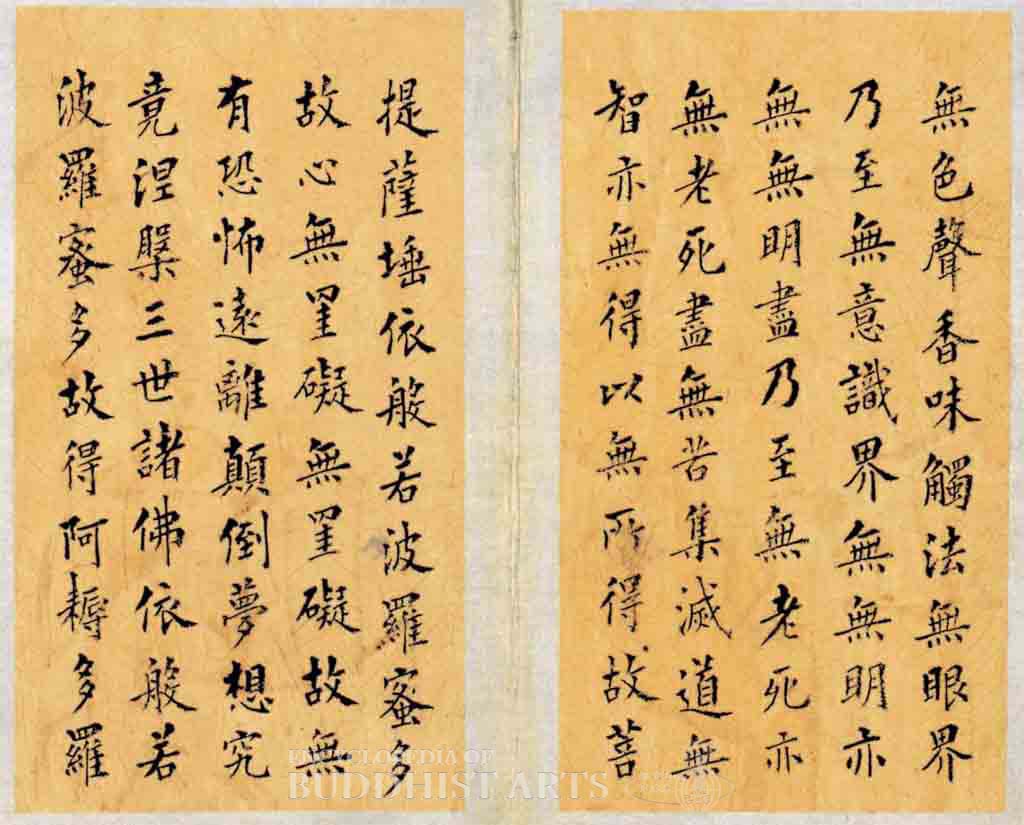 無色聲香味觸法無眼界
乃至無意識界無無明亦
無無明盡乃至無老死亦
無老死盡無苦集滅道無
智亦無得以無所得故菩
提薩埵依般若波羅蜜多
故心無罣礙無罣礙故無
有恐怖遠離顛倒夢想究
竟涅槃三世諸佛依般若
波羅蜜多故得阿耨多羅
ENCYCLOPEDIA OF
BUDDHIST ARTS